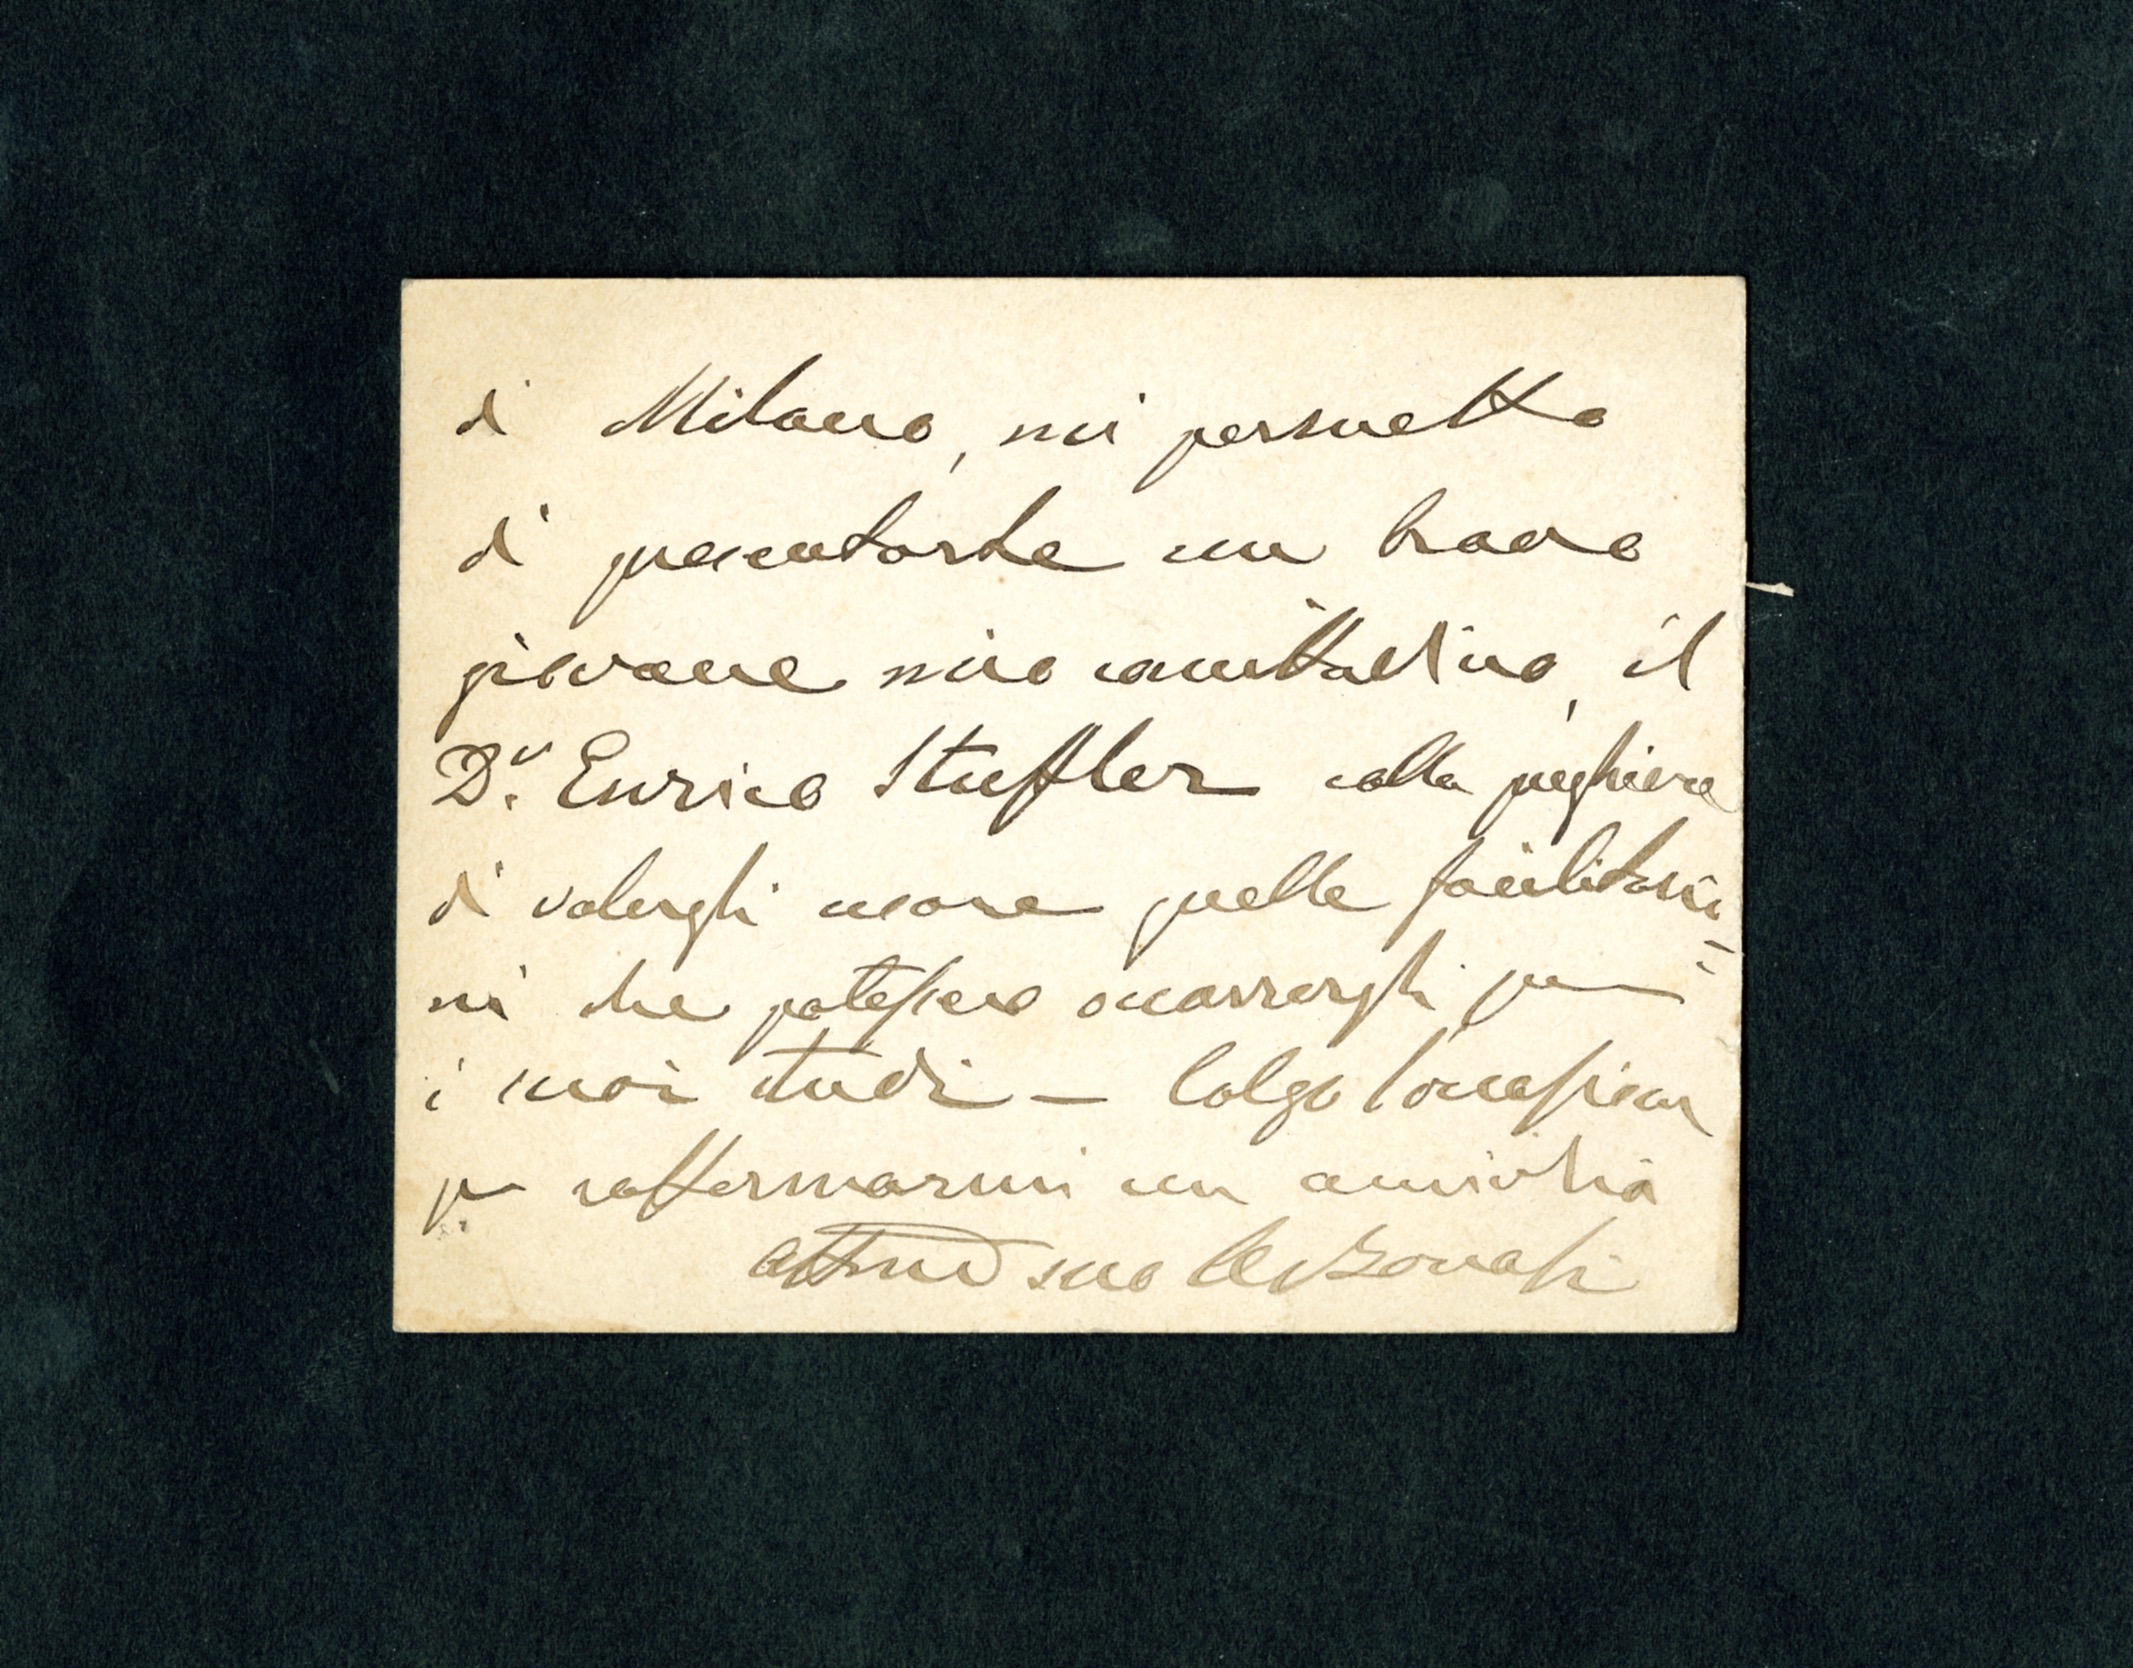 di Milano, mi permetto
di presentarle un bravo
giovane mio concittadino, il
Dr. Enrico Stuffler colla preghiera
di volergli usare quelle facilitazio=
ni che potessero occorrergli per
i suoi studi — Colgo l'occasione
per raffermarmi con amicizia
suo